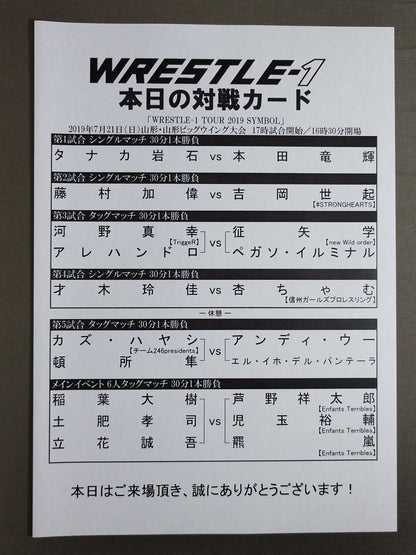 WRESTLE-1
本日の対戦カード
「WRESTLE-1 TOUR 2019 SYMBOL」
2019年7月21日(日)山形・山形ビッグウイング大会 17時試合開始/16時30分開場
第1試合 シングルマッチ 30分1本勝負
タナカ岩石 vs 本田竜輝
第2試合 シングルマッチ 30分1本勝負
藤村加偉 vs 吉岡世起
【#STRONGHEARTS】
第3試合 タッグマッチ 30分1本勝負
河野真幸 征矢学
【TriggeR】 vs 【new Wild order】
アレハンドロ ペガソ・イルミナル
第4試合 シングルマッチ 30分1本勝負
才木玲佳 vs 杏ちゃむ
【信州ガールズプロレスリング】
―休憩―
第5試合 タッグマッチ 30分1本勝負
カズ・ハヤシ アンディ・ウー
【チーム246presidents】 vs
頓所隼 エル・イホ・デル・パンテーラ
メインイベント 6人タッグマッチ 30分1本勝負
稲葉大樹 芦野祥太郎
【Enfants Terribles】
土肥孝司 vs 児玉裕輔
【Enfants Terribles】
立花誠吾 羆嵐
【Enfants Terribles】
本日はご来場頂き、誠にありがとうございます!